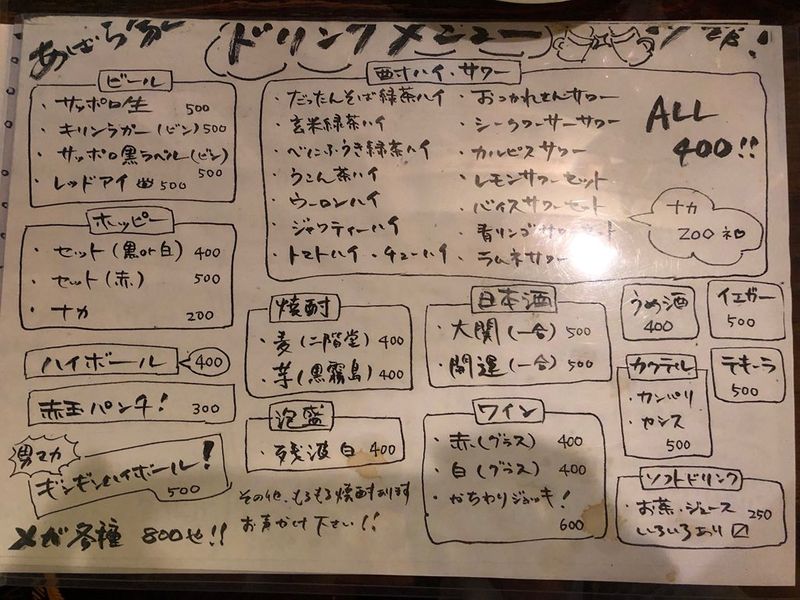 ドリンクメニュー
ビール
・サッポロ生 500
・キリンラガー(ビン) 500
・サッポロ黒ラベル(ビン) 500
・レッドアイ 500
ホッピー
・セット(黒or白) 400
・セット(赤) 500
・ナカ 200
ハイボール 400
赤玉パンチ! 300
男マカ
ギンギンハイボール! 500
メガ各種 800せ!!
酎ハイ・サワー
・だったんそば緑茶ハイ
・玄米緑茶ハイ
・べにふうき緑茶ハイ
・うこん茶ハイ
・ウーロンハイ
・ジャワティーハイ
・トマトハイ・チューハイ
・おつかれさんサワー
・シークワーサーサワー
・カルピスサワー
・レモンサワーセット
・バイスサワーセット
・青リンゴサワーセット
・ラムネサワー
ALL
400!!
ナカ
200ネ
焼酎
・麦(二階堂) 400
・芋(黒霧島) 400
泡盛
・残波白 400
その他、もろもろ焼酎あります
お声かけ下さい!!
日本酒
・大関(一合) 500
・開運(一合) 500
ワイン
・赤(グラス) 400
・白(グラス) 400
・かちわりジョッキ!
600
うめ酒
400
イエガー
500
カクテル
・カンパリ
・カシス
500
テキーラ
500
ソフトドリンク
・お茶・ジュース 250
いろいろあり〼